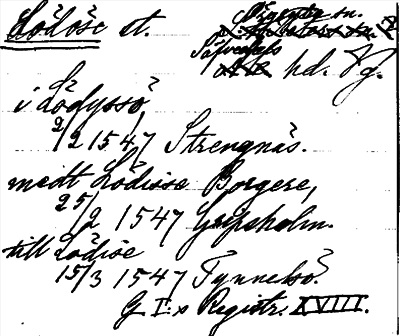 Lödöse st.
Sävedals hd. Vg.
i Lödyssö,
2/2 1547 Strengnäs.
medt Lödisse Borgere,
25/2 1547 Gripsholm.
till Lödise
15/3 1547 Tynnelsö.
G. I:s Registr. XVIII.